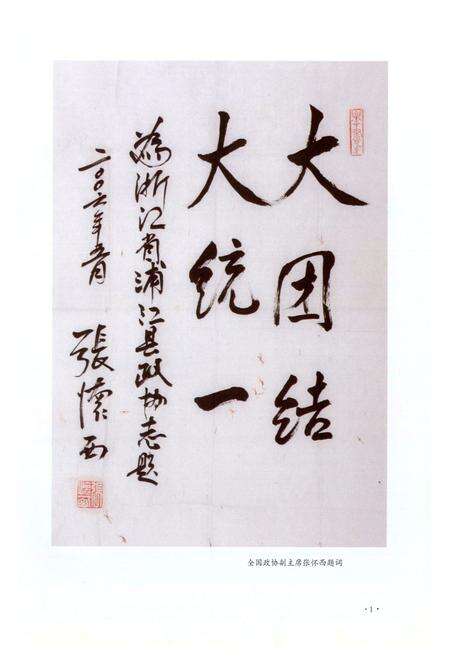 大团结
大统一
为浙江省浦江县政协志题
二〇〇六年五月
張懷西
全国政协副主席张怀西题词
·1·